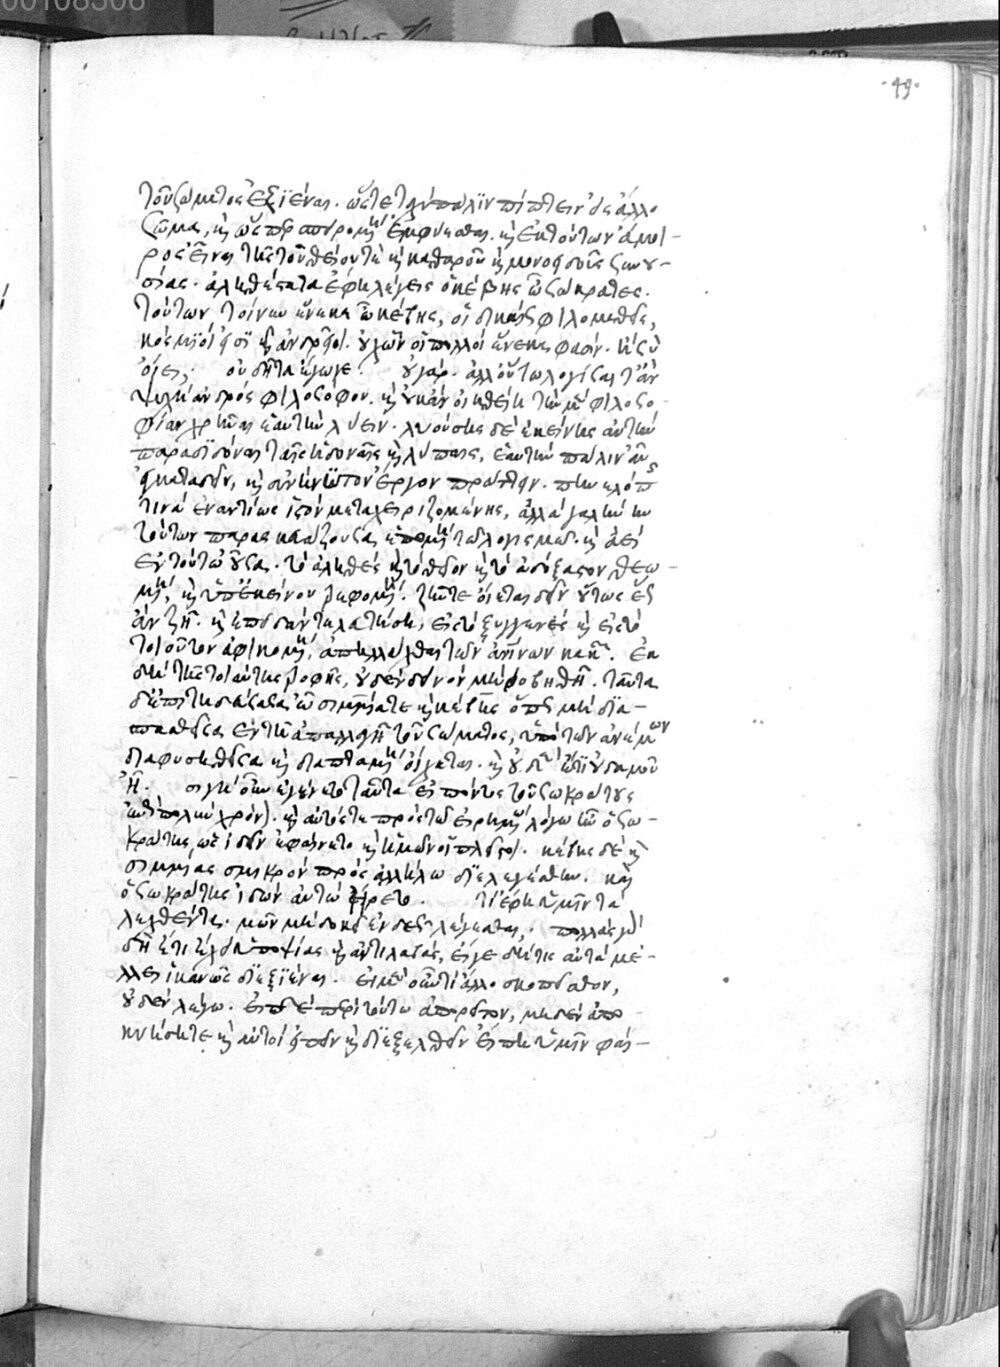 00108308
49
τοῦ σώματος ἐξιέναι. ὥστε ταχὺ πάλιν πίπτειν εἰς ἄλλο
σῶμα, καὶ ὥσπερ σπειρομένη ἐμφύεσθαι. καὶ ἐκ τούτων ἄμοι-
ρος εἶναι τῆς τοῦ θείου τε καὶ καθαροῦ καὶ μονοειδοῦς συνου-
σίας. ἀληθέστατα ἔφη λέγεις ὁ κέβης ὦ σώκρατες.
τούτων τοίνυν ἕνεκα ὦ κέβης, οἱ δικαίως φιλομαθεῖς,
κόσμιοί εἰσι καὶ ἀνδρεῖοι. οὐχ ὧν οἱ πολλοὶ ἕνεκα φασίν. ἢ σὺ
οἴει; οὐ δῆτα ἔγωγε. οὐ γάρ. ἀλλ' οὕτω λογίσαιτ' ἂν
ψυχὴ ἀνδρὸς φιλοσόφου. καὶ οὐκ ἂν οἰηθείη τὴν μὲν φιλοσο-
φίαν χρῆναι ἑαυτὴν λύειν. λυούσης δὲ ἐκείνης αὐτὴν
παραδιδόναι ταῖς ἡδοναῖς καὶ λύπαις, ἑαυτὴν πάλιν αὖ
ἐγκαταδεῖν, καὶ ἀνήνυτον ἔργον πράττειν. πηνελόπης
τινὰ ἐναντίως ἱστὸν μεταχειριζομένης, ἀλλὰ γαλήνην
τούτων παρασκευάζουσα, ἑπομένη τῷ λογισμῷ. καὶ ἀεὶ
ἐν τούτῳ οὖσα. τὸ ἀληθὲς καὶ τὸ θεῖον καὶ τὸ ἀδόξαστον θεω-
μένη, καὶ ὑπ' ἐκείνου τρεφομένη. ζῆν τε οἴεται δεῖν οὕτως ἕως
ἂν ζῇ. καὶ ἐπειδὰν τελευτήσῃ, εἰς τὸ ξυγγενὲς καὶ εἰς τὸ
τοιοῦτον ἀφικομένη, ἀπηλλάχθαι τῶν ἀνθρωπίνων κακῶν. ἐκ
δὲ τῆς τοιαύτης τροφῆς, οὐδὲν δεινὸν μὴ φοβηθῇ. ταῦτα
δ' ἐπιτηδεύσασα ὦ σιμμία τε καὶ κέβης ὅπως μὴ δια-
σπασθεῖσα ἐν τῇ ἀπαλλαγῇ τοῦ σώματος, ὑπὸ τῶν ἀνέμων
διαφυσηθεῖσα καὶ διαπτομένη οἴχηται. καὶ οὐδὲν ἔτι οὐδαμοῦ
ᾖ. σιγὴ οὖν ἐγένετο ταῦτα εἰπόντος τοῦ σωκράτους
ἐπὶ πολὺν χρόνον. καὶ αὐτός τε πρὸς τῷ εἰρημένῳ λόγῳ ἦν ὁ σω-
κράτης, ὡς ἰδεῖν ἐφαίνετο καὶ ἡμῶν οἱ πλεῖστοι. κέβης δὲ καὶ
σιμμίας σμικρὸν πρὸς ἀλλήλω διελεγέσθην. καὶ
ὁ σωκράτης ἰδὼν αὐτὼ ἤρετο. τί ἔφη ὑμῖν τὰ
λεχθέντα. μῶν μὴ δοκεῖ ἐνδεῶς λέγεσθαι. πολλὰς γὰρ
δὴ ἔτι ἔχει ὑποψίας καὶ ἀντιλαβάς, εἴ γε δή τις αὐτὰ μέ-
λλει ἱκανῶς διεξιέναι. εἰ μὲν οὖν τι ἄλλο σκοπεῖσθον,
οὐδὲν λέγω. εἰ δέ τι περὶ τούτω ἀπορεῖτον, μηδὲν ἀπο-
κνήσητε καὶ αὐτοὶ εἰπεῖν καὶ διεξελθεῖν εἴ πῃ ὑμῖν φαί-